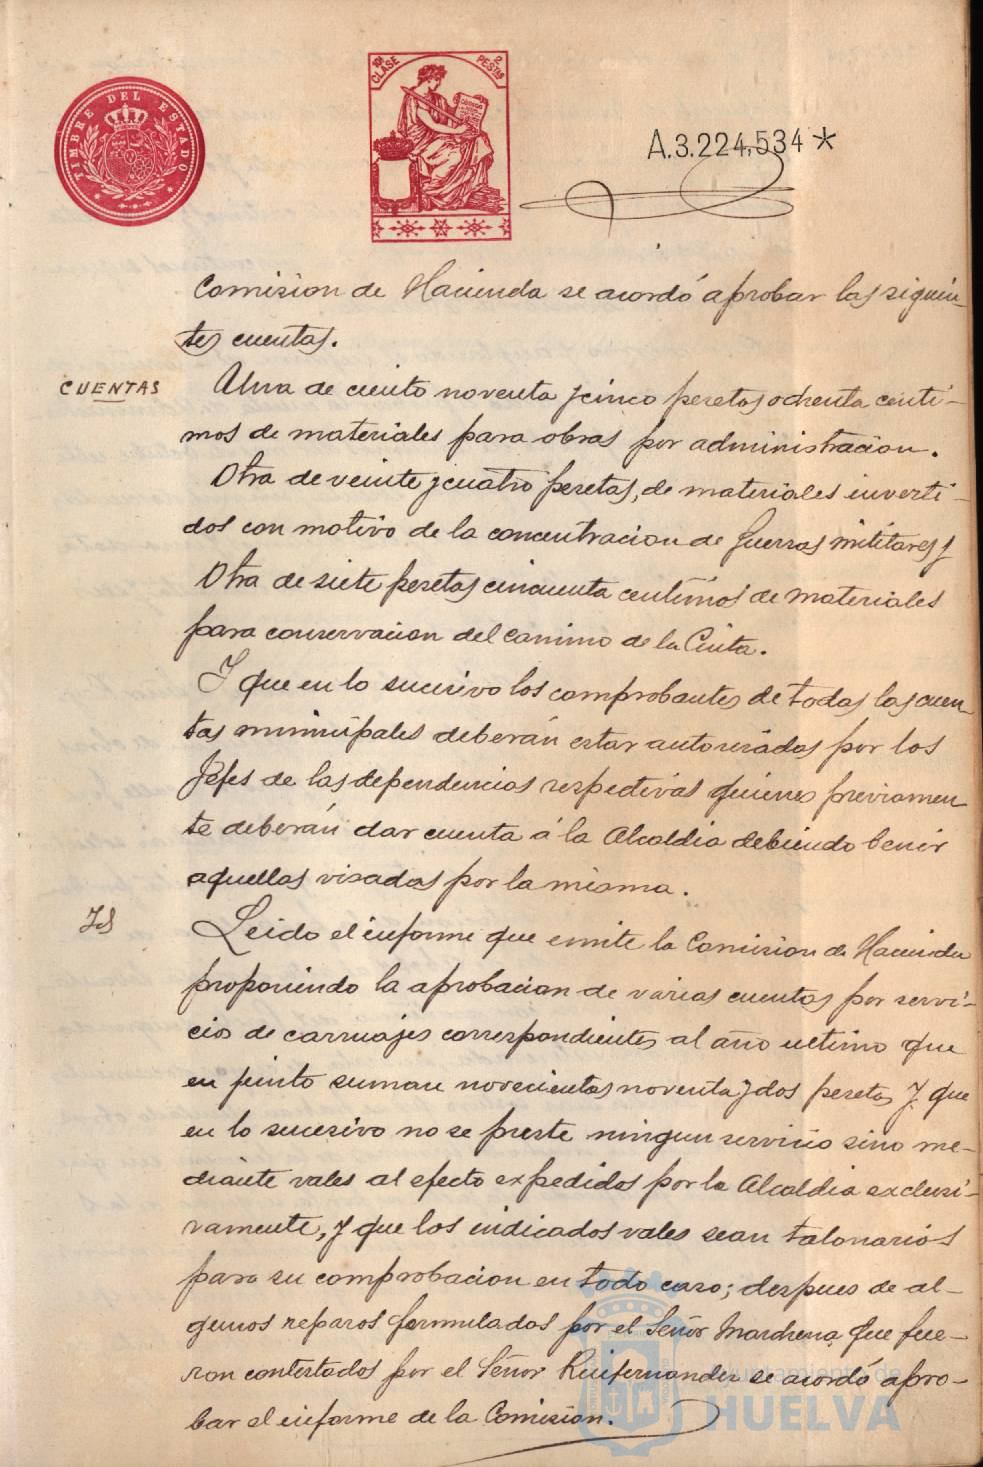 TIMBRE DEL ESTADO
10ª CLASE
2 PESTAS
A.3.224,534*
Comision de Hacienda se acordó aprobar las siguien-
tes cuentas.
CUENTAS
Una de ciento noventa y cinco pesetas ochenta centi-
mos de materiales para obras por administracion.
Otra de veinte y cuatro pesetas, de materiales inverti-
dos con motivo de la concentracion de fuerzas militares y
Otra de siete pesetas cincuenta centimos de materiales
para conservacion del camino de la Cinta.
Y que en lo sucesivo los comprobantes de todas las cuen
tas municipales deberán estar autorizadas por los
Jefes de las dependencias respectivas quienes previamen
te deberán dar cuenta á la Alcaldia debiendo benir
aquellas visadas por la misma.
Id
Leido el informe que emite la Comision de Hacienda
proponiendo la aprobacion de varias cuentas por servi-
cios de carruajes correspondientes al año ultimo que
en junto suman novecientas noventa y dos pesetas y que
en lo sucesivo no se preste ningun servicio sino me-
diante vales al efecto expedidos por la Alcaldia exclusi-
vamente, y que los indicados vales sean talonarios
para su comprobacion en todo caso; despues de al-
gunos reparos formulados por el Señor Marchena que fue-
ron contestados por el Señor Ruifernandez se acordó apro-
bar el informe de la Comision.
Ayuntamiento de
HUELVA